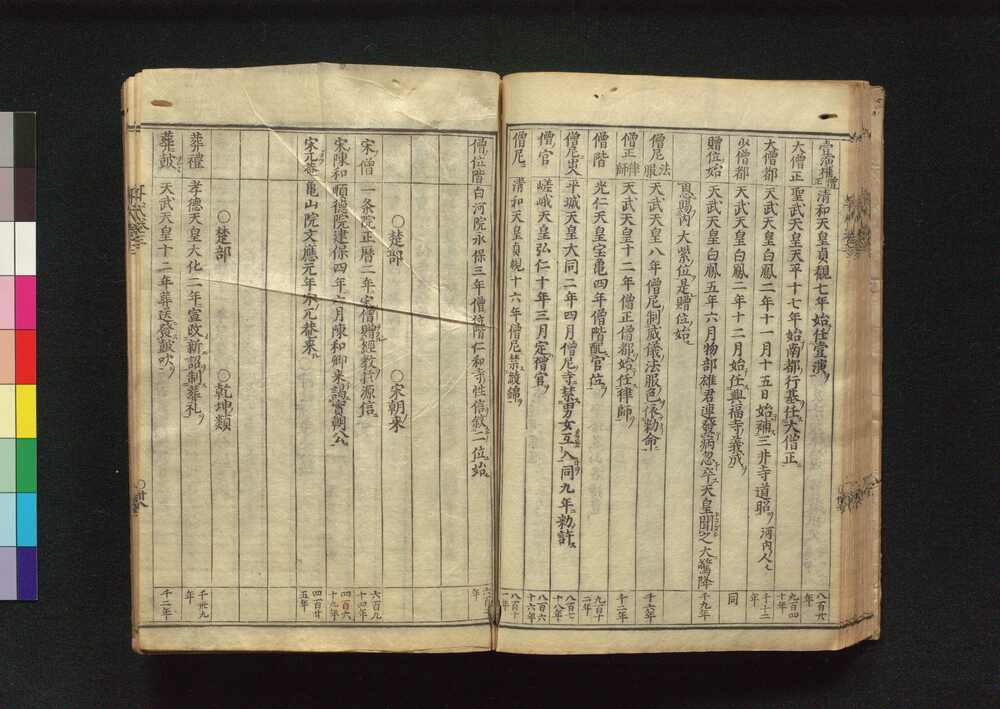 清和天皇貞觀七年始任壹演 八百廿年
大僧正 聖武天皇天平十七年始南都行基任大僧正 九百四十年
大僧都 天武天皇白鳳二年十一月十五日始補三井寺道昭河内人 千十二年
少僧都 天武天皇白鳳二年十二月始任興福寺義成 同
贈位始 天武天皇白鳳五年六月物部雄君連發病忽卒天皇聞之大驚降 千九年
恩賜内大紫位是贈位始
僧尼法服 天武天皇八年僧尼制威儀法服色依勅命 千六年
僧正律師 天武天皇十二年僧正僧都始任律師 千二年
僧階 光仁天皇宝亀四年僧階配官位 九百十二年
僧尼出入 平城天皇大同二年四月僧尼寺禁男女互入同九年勅許 八百七十八年
僧官 嵯峨天皇弘仁十年三月定僧官 八百六十六年
僧尼 清和天皇貞観十六年僧尼禁綾錦 八百十一年
僧位階 白河院永保三年僧位階仁和寺性信叙二位始
○楚部 ○宋朝来
宋僧 一条院正暦二年宋僧贈經教於源信 六百九十四年
宋陳和 順徳院建保四年六月陳和卿来謁實朝公 四百六十九年
宋元菴 亀山院文應元年宋元菴来 四百廿五年
○楚部 ○乾坤類
葬禮 孝德天皇大化二年宣改新詔制葬礼 千卅九年
葬鼓 天武天皇十二年葬送發鼓吹 千二年